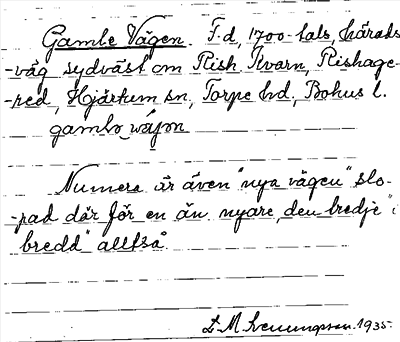 Gamle Vägen. F.d, 1700-tals, härads
-väg sydväst om Rish. Kvarn, Rishage-
-red, Hjärtum sn, Torpe hd, Bohus l.
gamlə wäjən
Numera är även "nya vägen" slo-
-pad där för en än nyare, den tredje "i
bredd" alltså.
L. M. Svenungsson. 1935.